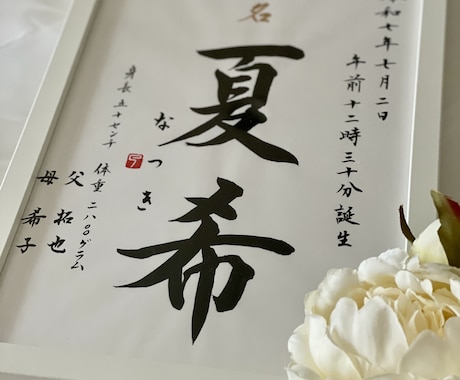 和七年七月二日
午前十二時三十分誕生
名
夏希
なつき
身長 五十七センチ
体重 二八〇〇グラム
父 拓也
母 希子